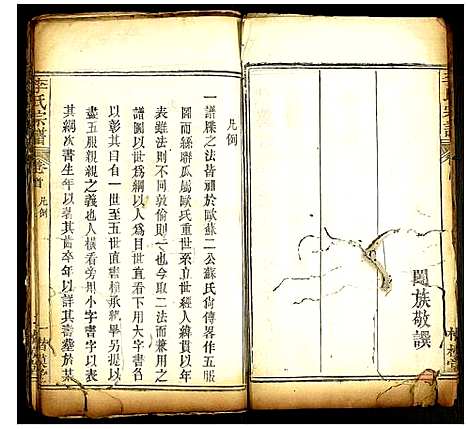 闔族敬譔
凡例
一譜牒之法皆祖於歐蘇二公蘇氏尙傳畧作五服
圖而緜聯瓜屬歐氏重世系直世經人緯貫以年
表雖法則不同敦倫則一也今取二法而兼用之
譜圖以世爲綱以人爲目直看下用大字書名
以彰其曰有一世至五世直書相承繩畢另提以
盡五服親親之義也人橫看旁用小字書字以
其綱次書生年以著其齒卒年以詳其壽塟於某
李氏宗譜
卷首
凡例